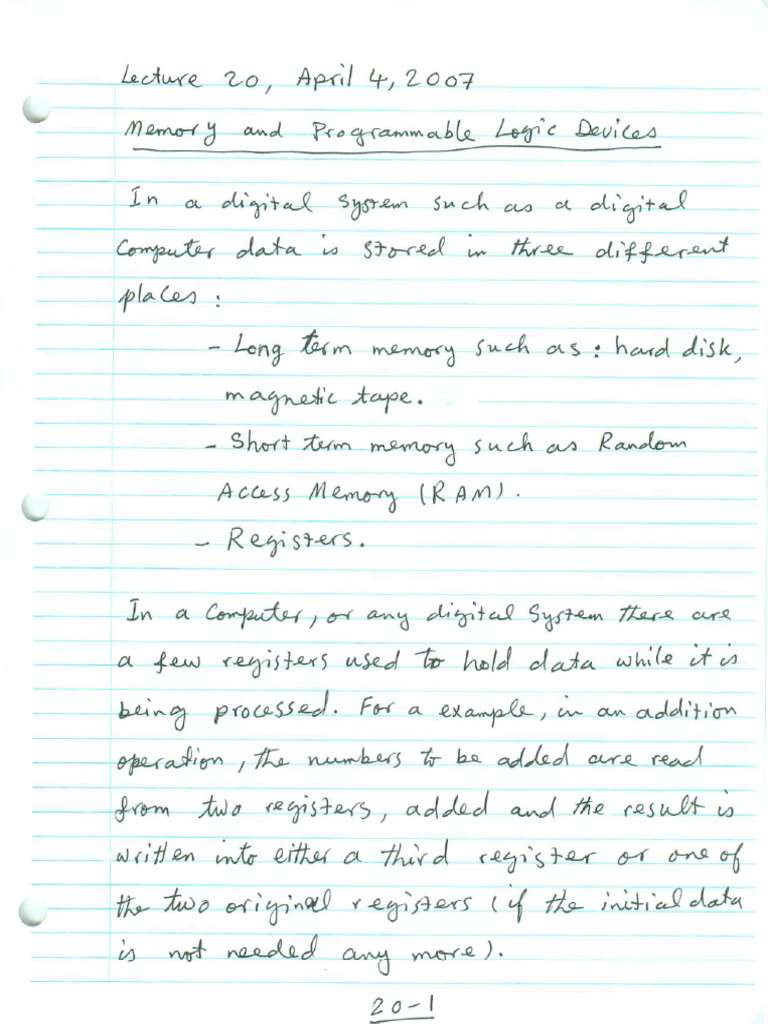 Lecture 20, April 4, 2007
Memory and Programmable Logic Devices
In a digital system such as a digital
Computer data is stored in three different
places :
- Long term memory such as : hard disk,
magnetic tape.
- Short term memory such as Random
Access Memory (RAM).
- Registers.
In a Computer, or any digital System there are
a few registers used to hold data while it is
being processed. For a example, in an addition
operation, the numbers to be added are read
from two registers, added and the result is
written into either a third register or one of
the two original registers (if the initial data
is not needed any more).
20-1